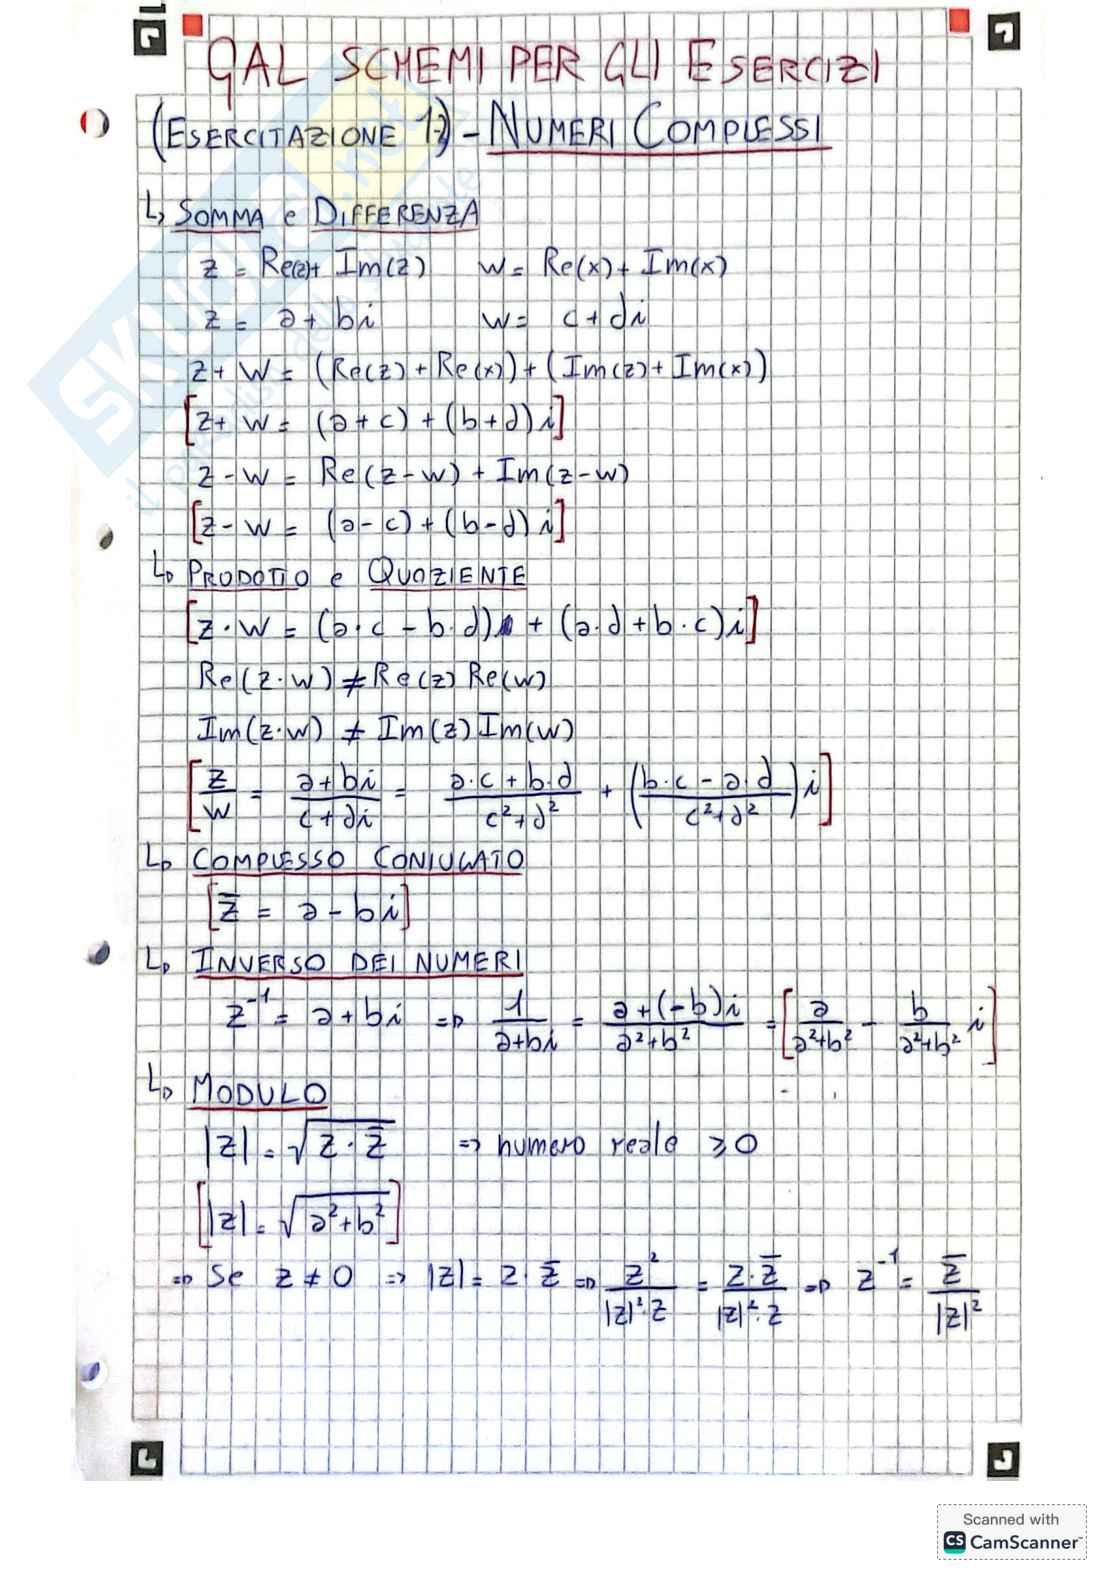 GAL SCHEMI PER GLI ESERCIZI
(ESERCITAZIONE 1) - NUMERI COMPLESSI
↳ SOMMA e DIFFERENZA
z = Re(z)+ Im(z) w = Re(x)+ Im(x)
z = a + bi w = c + di
z + w = (Re(z)+Re(x))+(Im(z)+Im(x))
[z + w = (a+c)+(b+d)i]
z - w = Re(z-w)+Im(z-w)
[z - w = (a-c)+(b-d)i]
↳ PRODOTTO e QUOZIENTE
[z·w = (a·c - b·d) + (a·d+b·c)i]
Re(z·w) ≠ Re(z) Re(w)
Im(z·w) ≠ Im(z) Im(w)
[z/w = (a+bi)/(c+di) = (a·c+b·d)/(c²+d²) + ((b·c-a·d)/(c²+d²))i]
↳ COMPLESSO CONIUGATO
[z̅ = a - bi]
↳ INVERSO DEI NUMERI
z⁻¹ = a+bi ⇒ 1/(a+bi) = (a+(-b)i)/(a²+b²) = [a/(a²+b²) - b/(a²+b²) i]
↳ MODULO
|z| = √(z·z̅) ⇒ numero reale ≥ 0
[|z| = √(a²+b²)]
⇒ Se z ≠ 0 ⇒ |z| = z·z̅ ⇒ z²/(|z|²·z) = (z·z̅)/(|z|²·z) ⇒ z⁻¹ = z̅/|z|²
SKUOLA.net
Scanned with
CS CamScanner